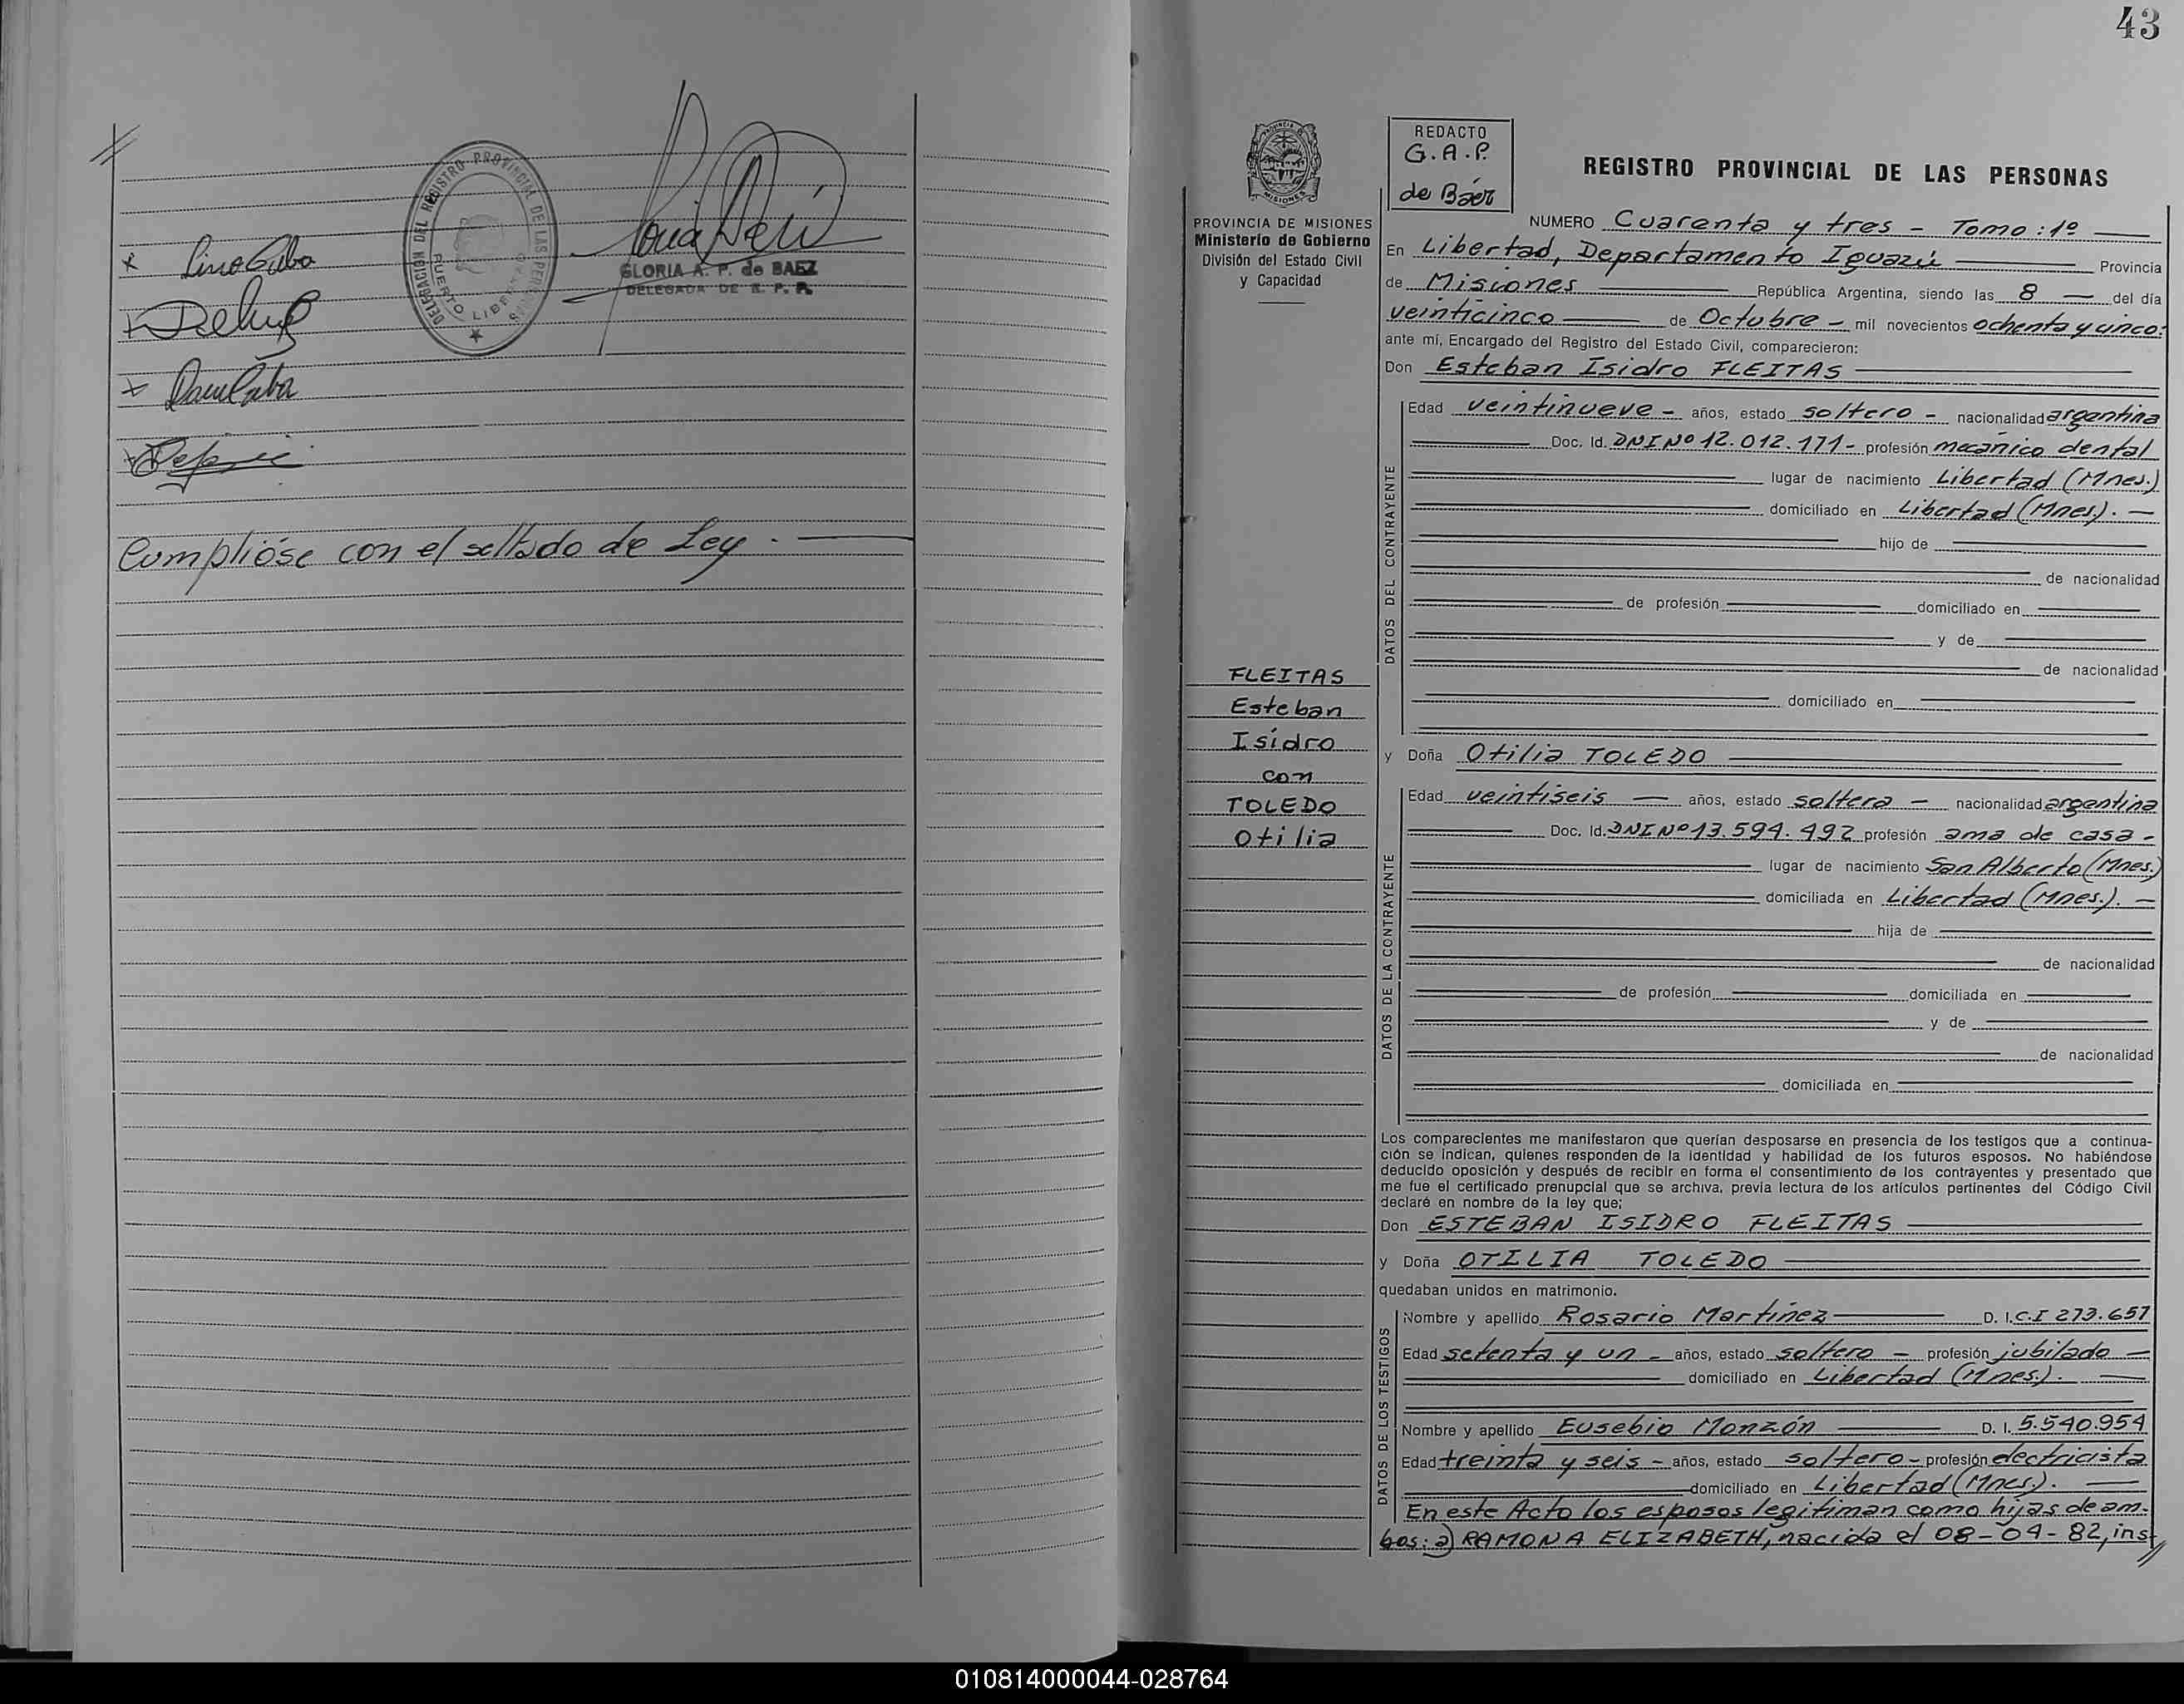 Lino Caba
GLORIA A. P. de BAEZ
DELEGADA DE R. P. P.
DELEGACION DEL REGISTRO PROVINCIAL DE LAS PERSONAS
PUERTO LIBERTAD
Cumplióse con el selltado de Ley.
43
PROVINCIA DE MISIONES
Ministerio de Gobierno
División del Estado Civil
y Capacidad
REDACTO
G.A.P.
de Báez
REGISTRO PROVINCIAL DE LAS PERSONAS
NUMERO Cuarenta y tres - Tomo: 1º
En Libertad, Departamento Iguazú Provincia
de Misiones República Argentina, siendo las 8 del día
veinticinco de Octubre - mil novecientos ochenta y cinco:
ante mí, Encargado del Registro del Estado Civil, comparecieron:
Don Esteban Isidro FLEITAS
DATOS DEL CONTRAYENTE
Edad veintinueve - años, estado soltero - nacionalidad argentina
Doc. Id. DNI Nº 12.012.171- profesión mecánico dental
lugar de nacimiento Libertad (Mnes.)
domiciliado en Libertad (Mnes). -
hijo de
de nacionalidad
de profesión domiciliado en
y de
de nacionalidad
domiciliado en
FLEITAS
Esteban
Isidro
con
TOLEDO
Otilia
y Doña Otilia TOLEDO
DATOS DE LA CONTRAYENTE
Edad veintiseis — años, estado soltera - nacionalidad argentina
Doc. Id. DNI Nº 13.594.492 profesión ama de casa -
lugar de nacimiento San Alberto (Mnes.)
domiciliada en Libertad (Mnes.). -
hija de
de nacionalidad
de profesión domiciliada en
y de
de nacionalidad
domiciliada en
Los comparecientes me manifestaron que querían desposarse en presencia de los testigos que a continua-
ción se indican, quienes responden de la identidad y habilidad de los futuros esposos. No habiéndose
deducido oposición y después de recibir en forma el consentimiento de los contrayentes y presentado que
me fue el certificado prenupcial que se archiva, previa lectura de los artículos pertinentes del Código Civil
declaré en nombre de la ley que;
Don ESTEBAN ISIDRO FLEITAS
y Doña OTILIA TOLEDO
quedaban unidos en matrimonio.
DATOS DE LOS TESTIGOS
Nombre y apellido Rosario Martínez D. I. C.I 273.657
Edad setenta y un - años, estado soltero - profesión jubilado —
domiciliado en Libertad (Mnes.).
Nombre y apellido Eusebio Monzón D. I. 5.540.954
Edad treinta y seis - años, estado soltero - profesión electricista
domiciliado en Libertad (Mnes.).
En este Acto los esposos legitiman como hijas de am-
bos: a) RAMONA ELIZABETH, nacida el 08-04-82, ins-
010814000044-028764